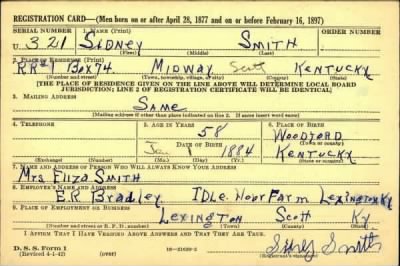 REGISTRATION CARD—(Men born on or after April 28, 1877 and on or before February 16, 1897)
SERIAL NUMBER 1. NAME (Print) ORDER NUMBER
U 321 SIDNEY SMITH
(First) (Middle) (Last)
2. PLACE OF RESIDENCE (Print)
RR#1 Box 74 MIDWAY Scott KENTUCKY
(Number and street) (Town, township, village, or city) (County) (State)
[THE PLACE OF RESIDENCE GIVEN ON THE LINE ABOVE WILL DETERMINE LOCAL BOARD
JURISDICTION; LINE 2 OF REGISTRATION CERTIFICATE WILL BE IDENTICAL]
3. MAILING ADDRESS
SAME
(Mailing address if other than place indicated on line 2. If same insert word same)
4. TELEPHONE 5. AGE IN YEARS 6. PLACE OF BIRTH
58 WOODFORD
DATE OF BIRTH (Town or county)
Jan 1 1884 KENTUCKY
(Exchange) (Number) (Mo.) (Day) (Yr.) (State or country)
7. NAME AND ADDRESS OF PERSON WHO WILL ALWAYS KNOW YOUR ADDRESS
Mrs Eliza SMITH
8. EMPLOYER'S NAME AND ADDRESS
E.R. Bradley IDLE HOUR FARM LEXINGTON Ky
9. PLACE OF EMPLOYMENT OR BUSINESS
LEXINGTON Scott Ky
(Number and street or R. F. D. number) (Town) (County) (State)
I AFFIRM THAT I HAVE VERIFIED ABOVE ANSWERS AND THAT THEY ARE TRUE.
D. S. S. Form 1
(Revised 4-1-42) (over) 16—21630-2 Sidney Smith